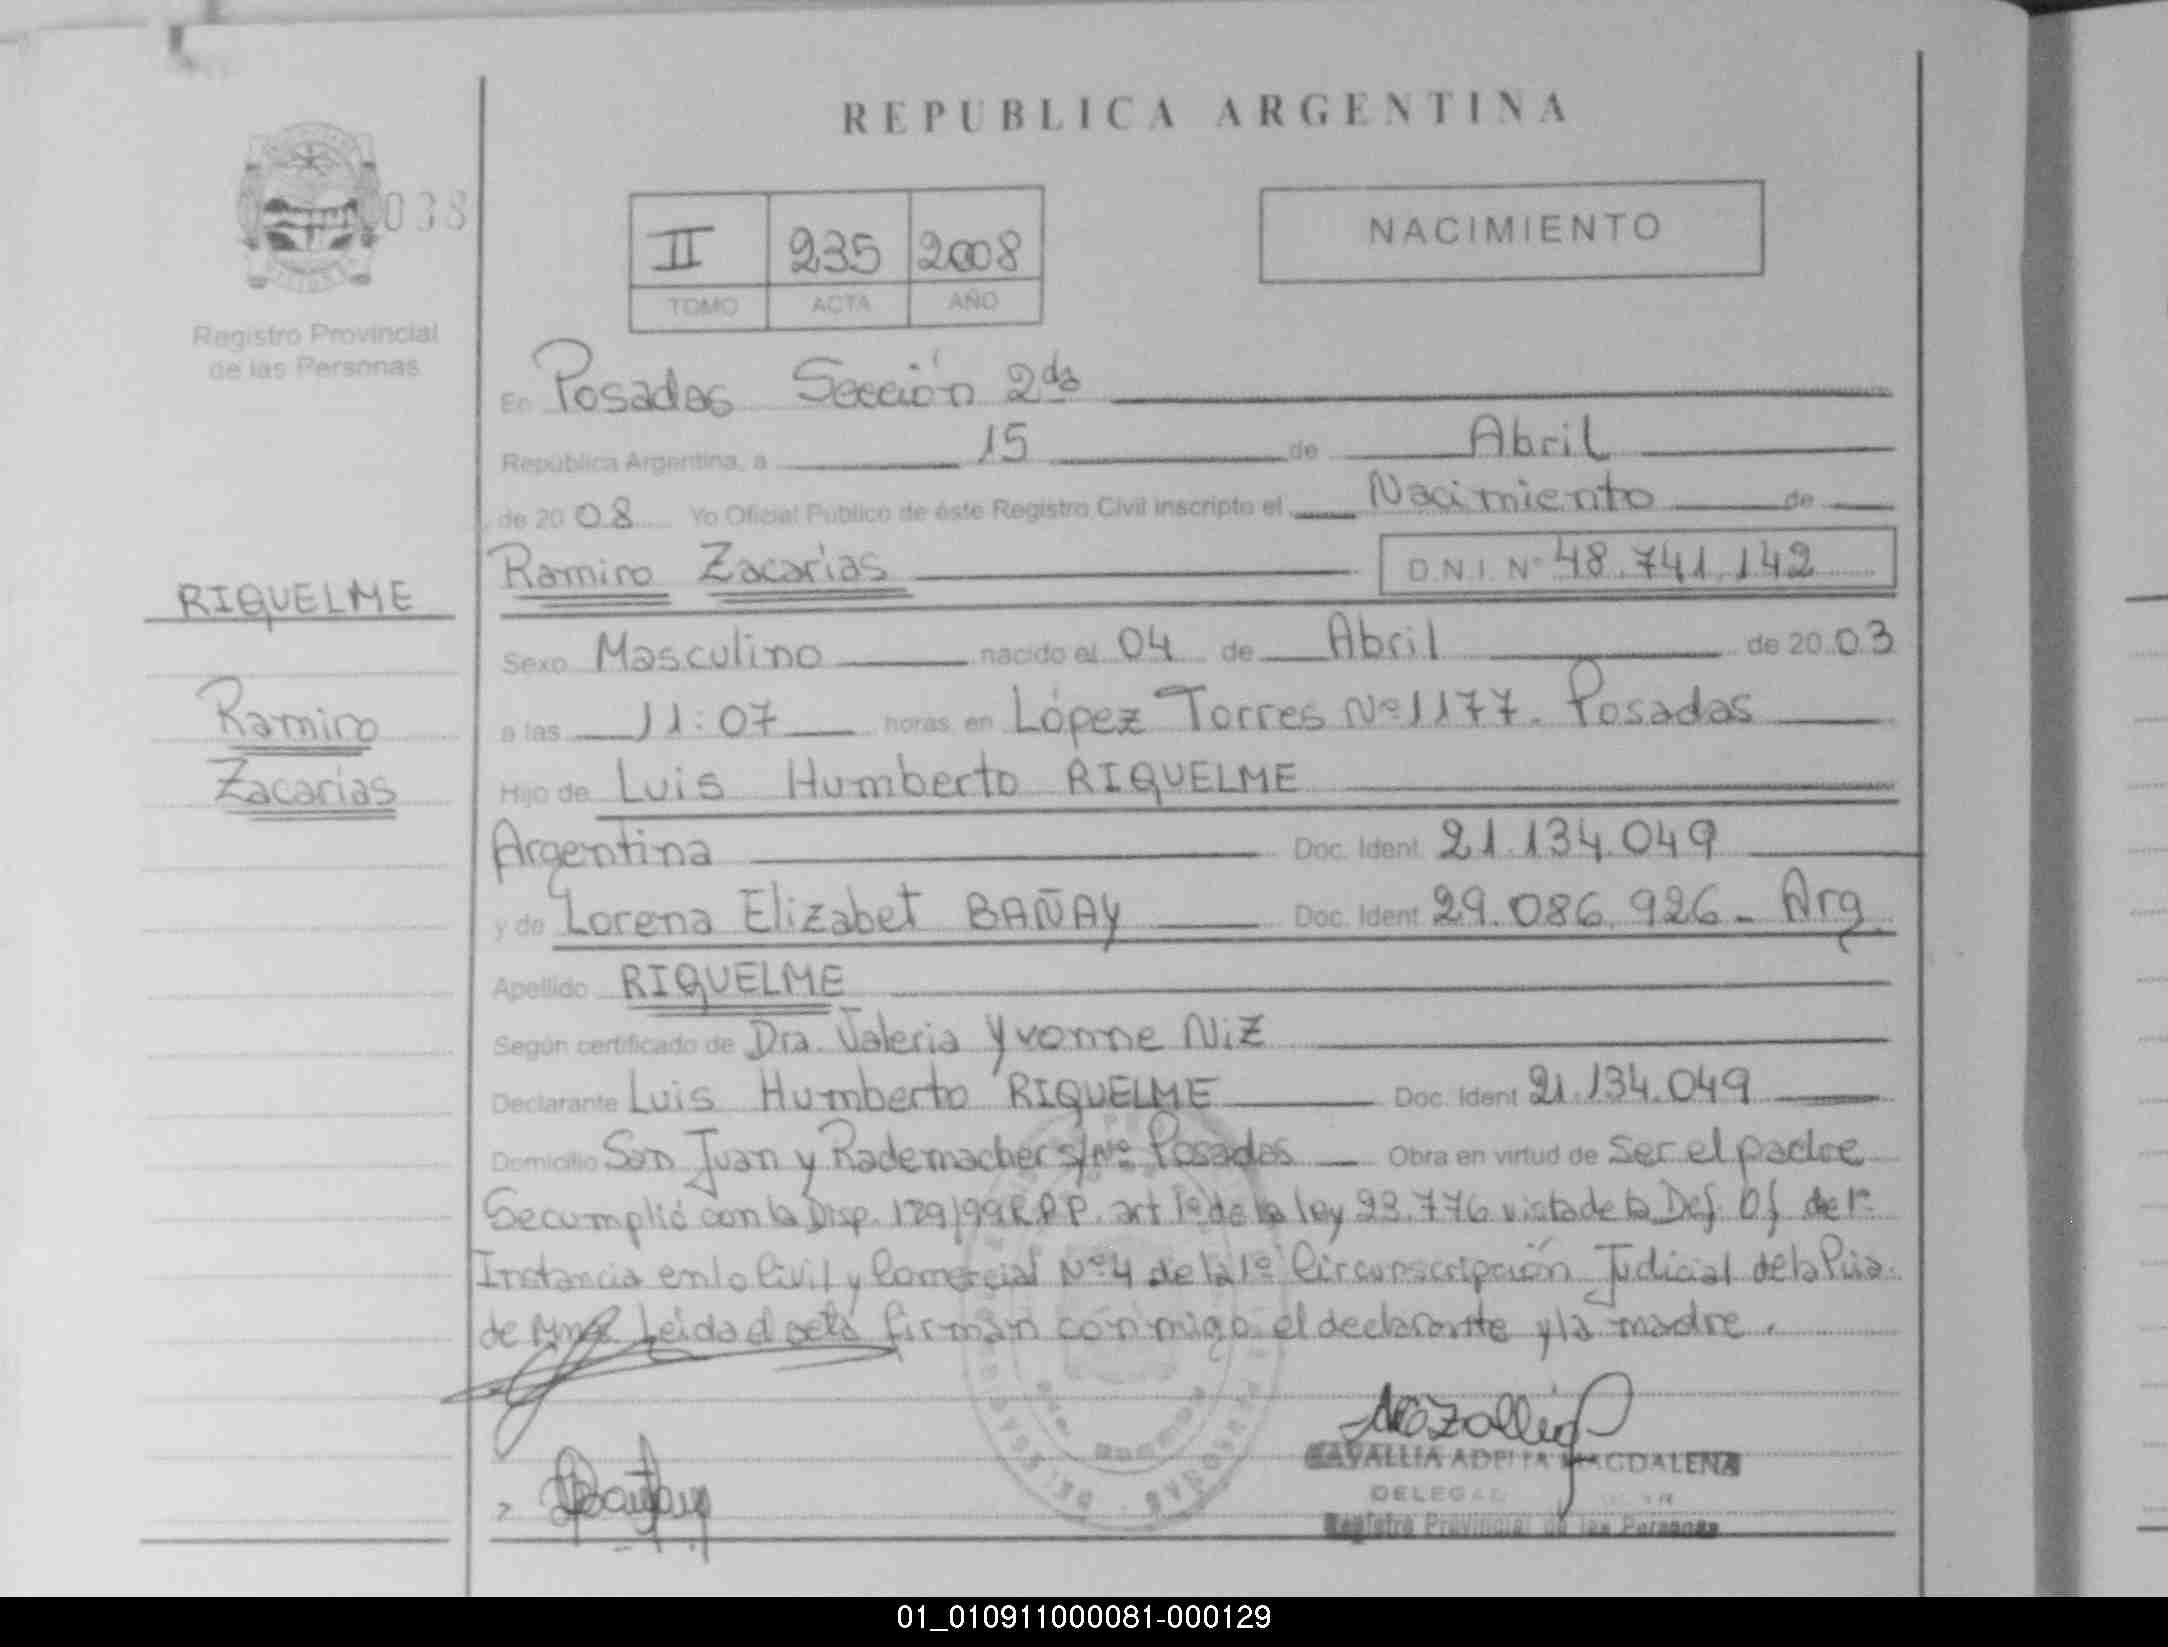 REPUBLICA ARGENTINA
038
II 235 2008
TOMO ACTA AÑO
NACIMIENTO
Registro Provincial
de las Personas
En Posadas Sección 2da
República Argentina, a 15 de Abril
de 2008 Yo Oficial Público de éste Registro Civil inscripto el Nacimiento de
Ramiro Zacarías D.N.I. Nº 48.741.142
RIQUELME
Ramiro
Zacarías
Sexo Masculino nacido el 04 de Abril de 2003
a las 11:07 horas en López Torres Nº 1177. Posadas
Hijo de Luis Humberto RIQUELME
Argentina Doc. Ident 21.134.049
y de Lorena Elizabet BAÑAY Doc. Ident 29.086.926 - Arg
Apellido RIQUELME
Según certificado de Dra. Valeria Yvonne Niz
Declarante Luis Humberto RIQUELME Doc. Ident 21.134.049
Domicilio San Juan y Rademacher s/Nº Posadas Obra en virtud de Ser el padre
Se cumplió con la Disp. 129/99 R.P.P. art 1º de la ley 23.776 vista de la Def. Of. de 1º
Instancia en lo Civil y Comercial Nº 4 de la 1º Circunscripción Judicial de la Pcia.
de Leida el acta firman conmigo el declarante y la madre.
MAGDALENA
Registro Provincial de las Personas
01_010911000081-000129